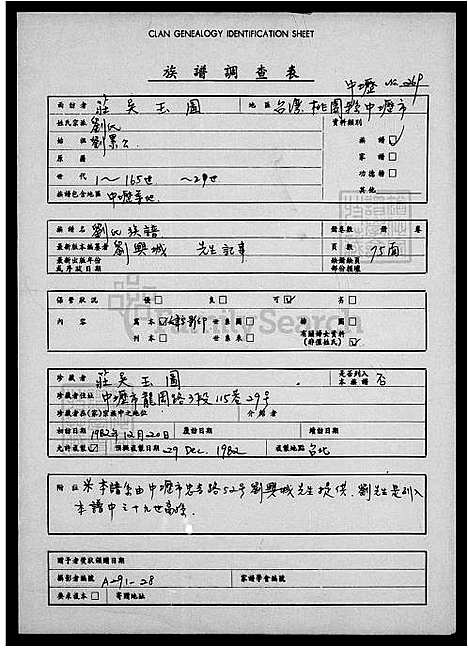 CLAN GENEALOGY IDENTIFICATION SHEET
族譜調查表
中壢 No. 0269
面訪者 莊吳玉圖 地區 台灣桃園縣中壢市
姓氏宗族 劉氏 資料類別
始祖 劉累公 族譜 ☑
原籍 家譜 □
世代 1～165世 ～29世 功德榜 □
族譜包含地區 中壢等地 其他
族譜名 劉氏族譜 譜卷數 譜 卷
最新版本編纂者 劉興城 先生記事 頁數 75面
最新出版年份 缺譜缺頁
或序跋日期 部份損壞
保管狀況 優□ 良□ 可☑ 劣□
內容 寫本☑ 影印 世系圖□ 繪圖□
刊本□ 世系表□ 有關婦女資料(非僅姓氏)☑
珍藏者 莊吳玉圖 是否列入本族譜 否
珍藏者住址 中壢市龍岡路3段115巷29号
珍藏者在(家)宗族中之地位 介紹者
初訪日期 1982年12月20日 覆訪日期 續訪日期
允許複製☑ 預期複製日期 29 Dec. 1982 複製地點 台北
附註 ※本譜系由中壢市忠孝路52号劉興城先生提供. 劉先生是列入
本譜中之十九世裔孫.
贈予者獎狀頒贈日期
攝影者編號 A-291-28 家譜學會編號
要求複本□ 寄贈地址
FamilySearch